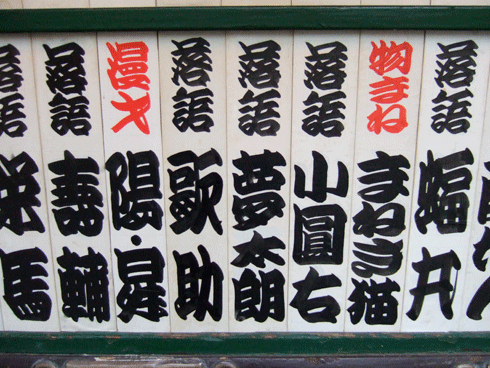 落語 蝠丸
物まね まねき猫
落語 小圓右
落語 夢太朗
落語 歌助
漫才 陽・昇
落語 壽輔
落語 栄馬